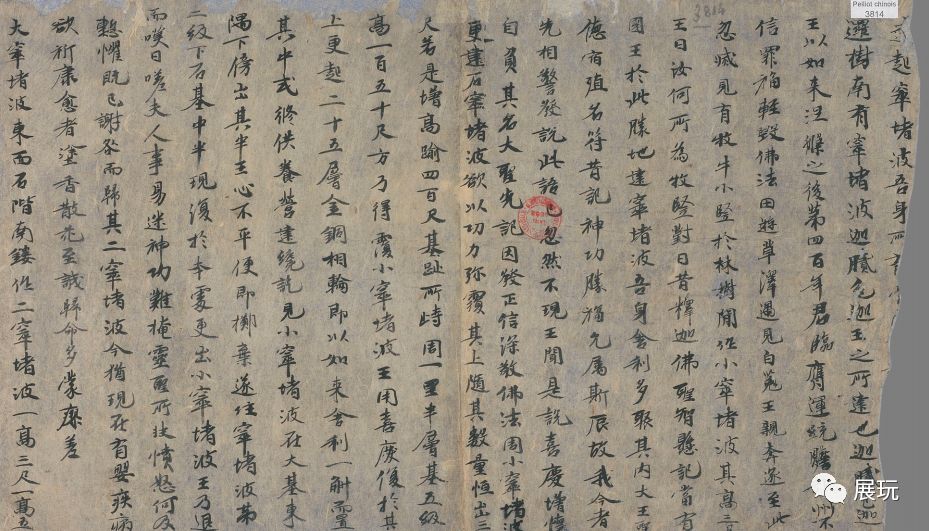 起窣堵波吾身所
邏樹南有窣堵波迦膩色迦王之所建也迦膩色迦
王以如来涅槃之後第四百年君臨膺運統贍部州不
信罪福輕毀佛法田遊草澤遇見白兔王親奔逐至此
忽滅見有牧牛小豎於林樹間作小窣堵波其高三
王曰汝何所為牧豎對曰昔釋迦佛聖智懸記當有
國王於此勝地建窣堵波吾身舍利多聚其內大王聖
德宿殖名符昔記神功勝福允属斯辰故我今者
先相警發說此語已忽然不現王聞是說喜慶增懷
自負其名大聖先記因發正信深敬佛法周小窣堵波
更建石窣堵波欲以功力弥覆其上随其數量恒出三
尺若是增高踰四百尺基趾所峙周一里半層基五級
高一百五十尺方乃得覆小窣堵波王用喜慶復於其
上更起二十五層金銅相輪即以如来舍利一斛置
其中式修供養營建纔訖見小窣堵波在大基東
隅下傍出其半王心不平便即擲棄遂住窣堵波第
二級下石基中半現復於本處更出小窣堵波王乃退
而嘆曰嗟夫人事易迷神功難掩靈聖所扶憤怒何及
慙懼既已謝咎而歸其二窣堵波今猶現在有嬰疾病
欲祈康愈者塗香散花至誠歸命多蒙瘳差
大窣堵波東面石階南鏤作二窣堵波一高三尺一高五
Pelliot chinois
3814
3814
展玩